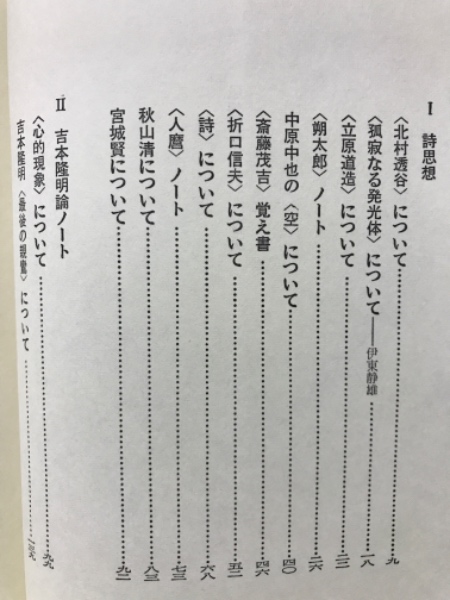 Ⅰ 詩思想
〈北村透谷〉について……九
〈孤寂なる発光体〉について――伊東静雄……一八
〈立原道造〉について……二三
〈朔太郎〉ノート……二六
中原中也の〈空〉について……四〇
〈斎藤茂吉〉覚え書……四六
〈折口信夫〉について……五二
〈詩〉について……六八
〈人麿〉ノート……七三
秋山清について……八三
宮城賢について……九二
Ⅱ 吉本隆明論ノート
〈心的現象〉について……九九
吉本隆明〈最後の親鸞〉について……